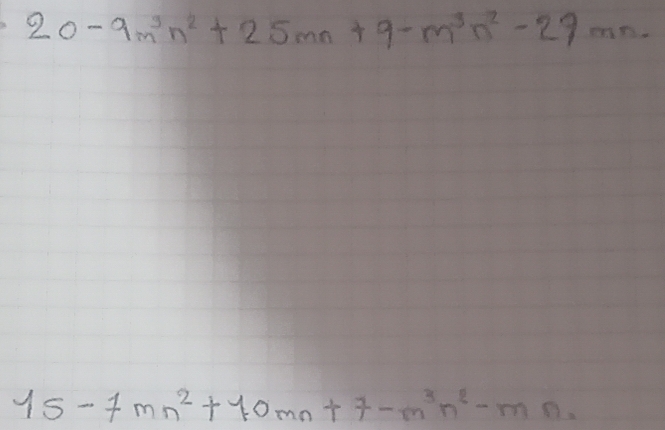 20 - 9m³n² + 25mn + 9 - m³n² - 27mn.
15 - 7mn² + 10mn + 7 - m³n² - mn.